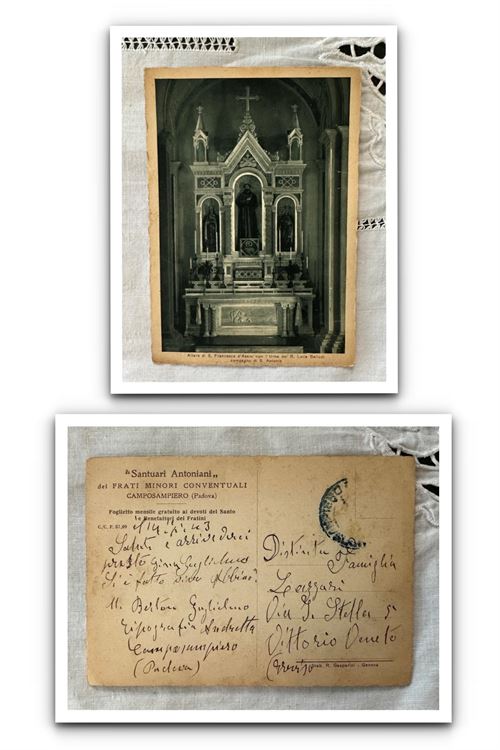 Altare di S. Francesco d'Assisi con l'Urna del B. Luca Belludi
compagno di S. Antonio
"Santuari Antoniani„
dei FRATI MINORI CONVENTUALI
CAMPOSAMPIERO (Padova)
Foglietto mensile gratuito ai devoti del Santo
e Benefattori dei Fratini
C/C. P.
Saluti e arrivederci
presto Gina Guglielmo
Si è fatto
M. Berton Guglielmo
Tipografia Andretta
Camposampiero
(Padova)
Distinta
Famiglia
Lazzari
Via S. Stella 5
Vittorio Veneto
(Treviso)
Grab. R. Gasparini - Genova